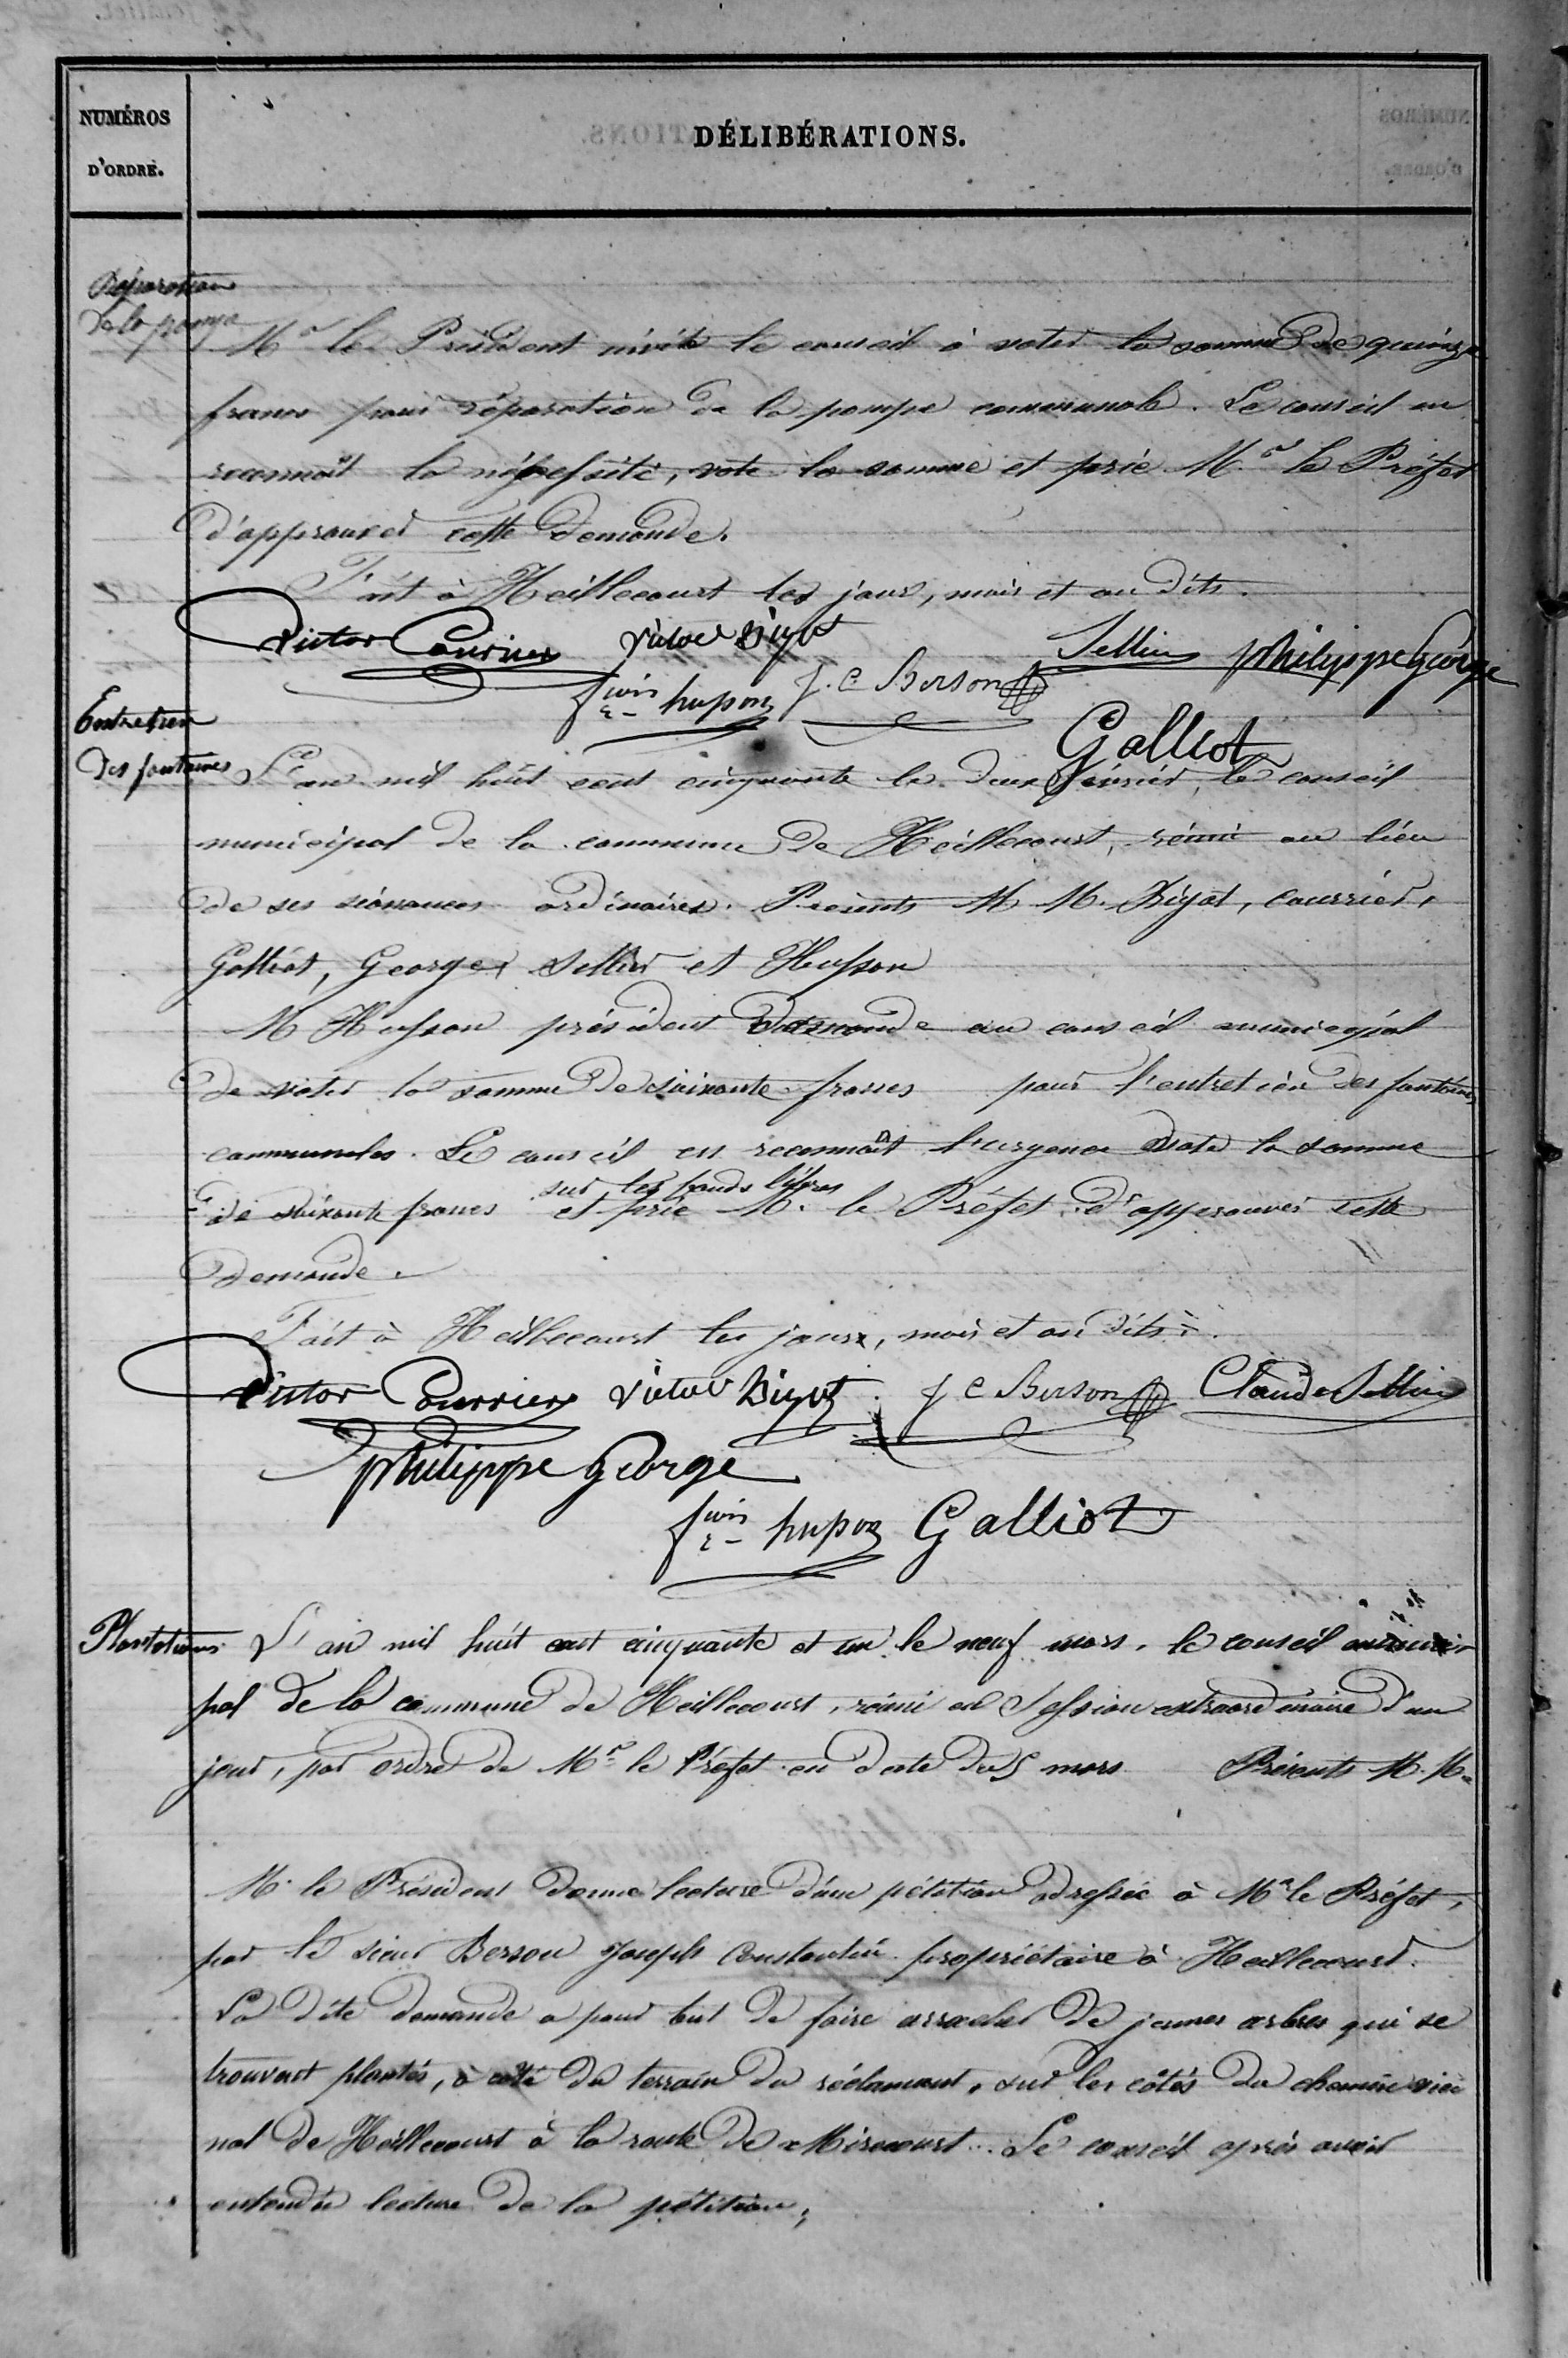 NUMÉROS
D'ORDRE.
DÉLIBÉRATIONS.
Réparation
de la pompe
Mr le Président invite le conseil à voter la somme de quinze
francs pour réparation de la pompe communale. Le conseil en
reconnaît la nécessité, vote la somme et prie Mr le Préfet
d'approuver cette demande.
Fait à Heillecourt les jour, mois et an dits.
Victor Courrier Victor Bigot Sellier philippe George
fcois husson J. C Berson
Galliot
Entretien
des fontaines
L'an mil huit cent cinquante le deux février, le conseil
municipal de la commune de Heillecourt, réuni au lieu
de ses séances ordinaires. Présents M M. Bigot, Courrier,
Galliot, George, Sellier et Husson
M Husson président demande au conseil municipal
de voter la somme de soixante francs pour l'entretien des fontaines
communales. Le conseil en reconnait l'urgence vote la somme
sur les fonds libres
de soixante francs et prie M. le Préfet d'approuver cette
demande.
Fait à Heillecourt les jours, mois et an dits.
Victor Courrier Victor Bigot J C Berson Claude Sellier
philippe George
fcois husson Galliot
Plantations
L'an mil huit cent cinquante et un le neuf mars, le conseil munici
pal de la commune de Heillecourt, réuni en Session extraordinaire d'un
jour, par ordre de Mr le Préfet en date du 5 mars Présents M. M.
M. le Président donne lecture d'une pétition adressée à Mr le Préfet,
par le sieur Berson Joseph Constantin propriétaire à Heillecourt.
La dite demande a pour but de faire arracher de jeunes arbres qui se
trouvent plantés, à côté du terrain du réclamant, sur les côtés du chemin vici
nal de Heillecourt à la route de Mirecourt. Le conseil après avoir
entendu lecture de la pétition;